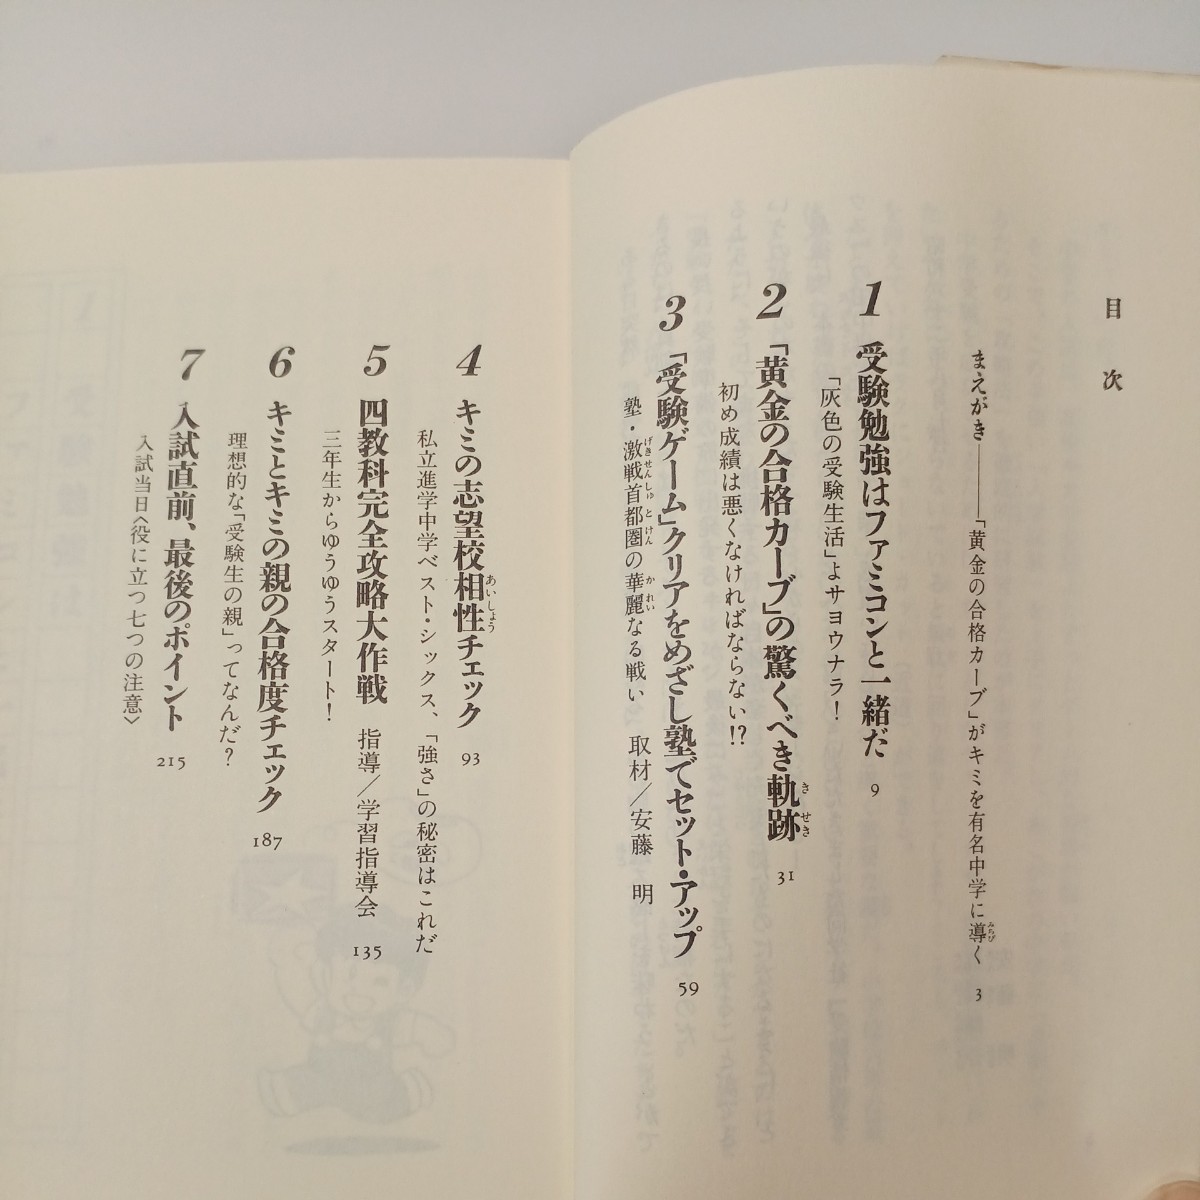 目次
まえがき――「黄金の合格カーブ」がキミを有名中学に導く 3
1 受験勉強はファミコンと一緒だ 9
「灰色の受験生活」よサヨウナラ！
2 「黄金の合格カーブ」の驚くべき軌跡 31
初め成績は悪くなければならない!?
3 「受験ゲーム」クリアをめざし塾でセット・アップ 59
塾・激戦首都圏の華麗なる戦い 取材／安藤 明
4 キミの志望校相性チェック 93
私立進学中学ベスト・シックス、「強さ」の秘密はこれだ
5 四教科完全攻略大作戦 指導／学習指導会 135
三年生からゆうゆうスタート！
6 キミとキミの親の合格度チェック 187
理想的な「受験生の親」ってなんだ？
7 入試直前、最後のポイント 215
入試当日〈役に立つ七つの注意〉